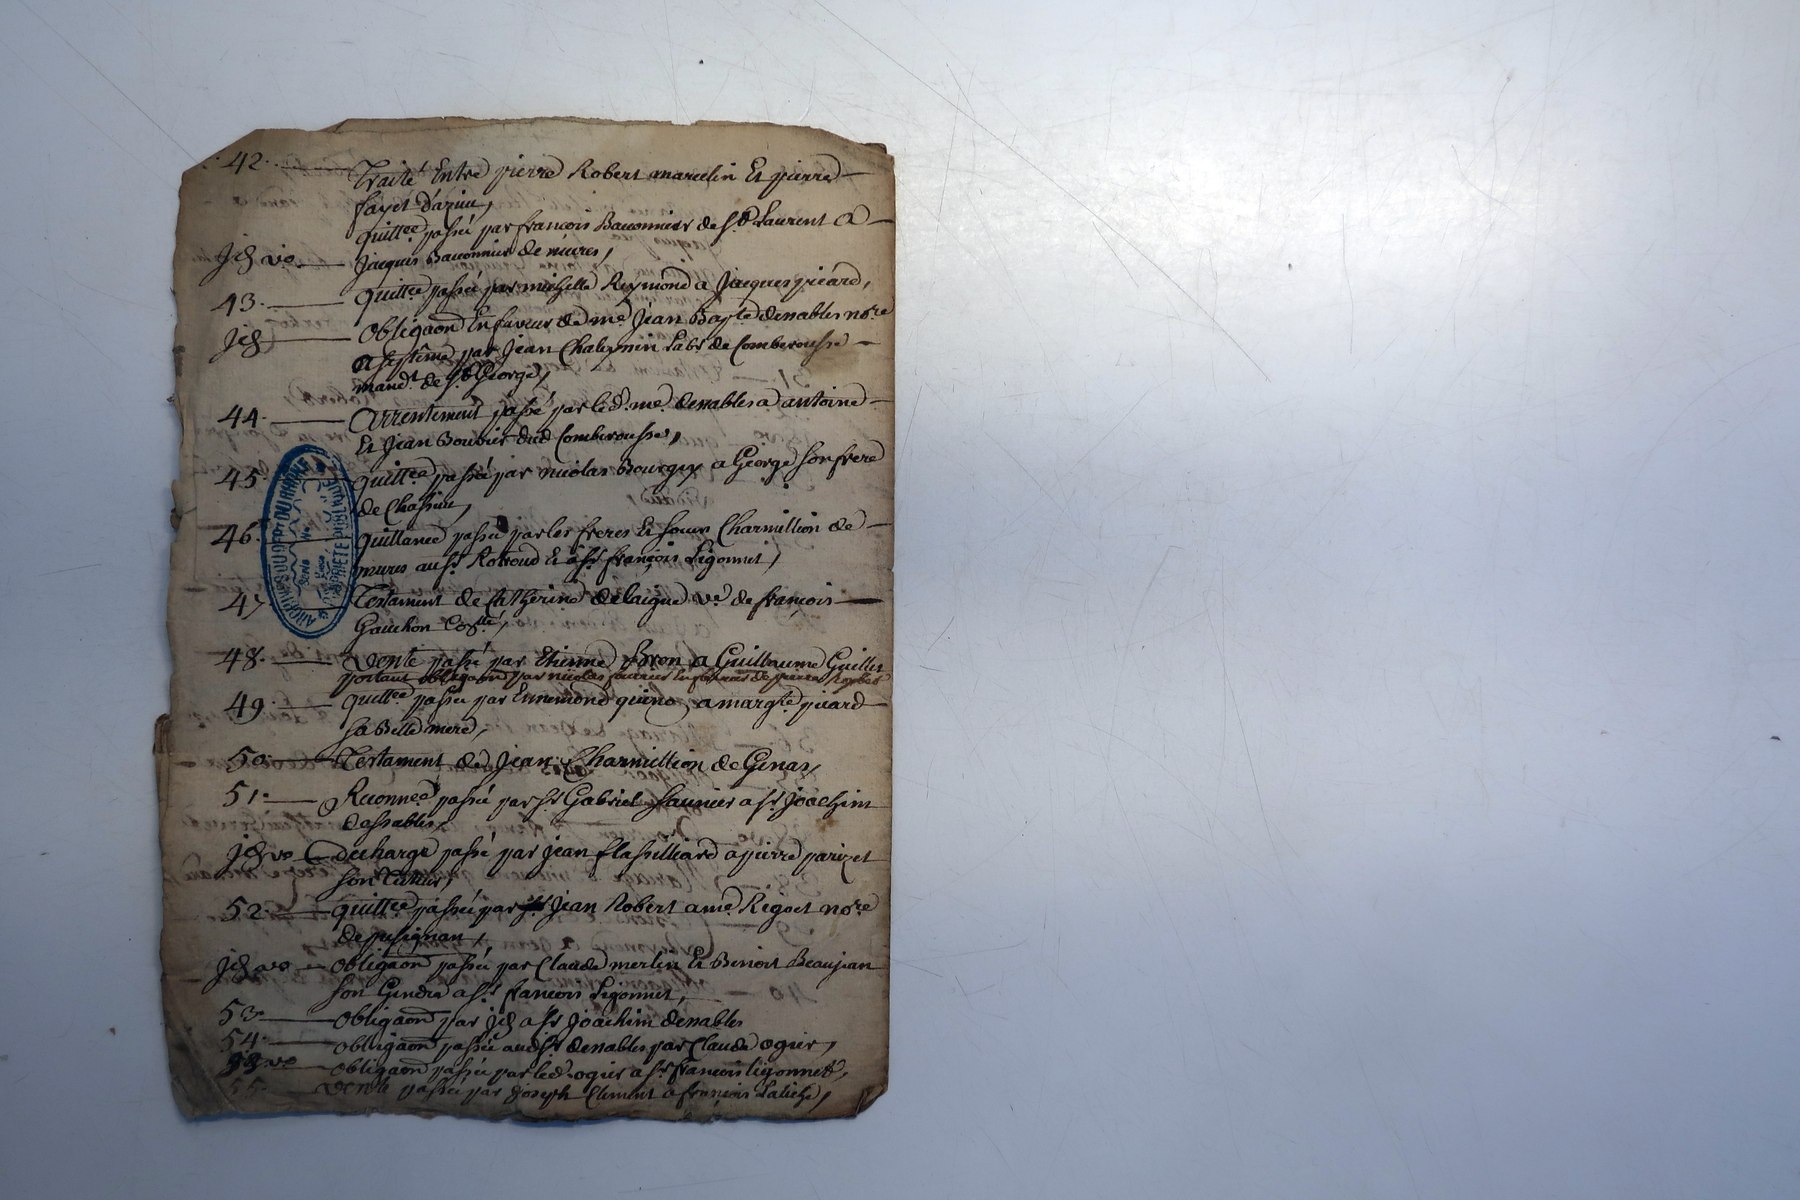 42. Traité Entre pierre Robert marcelin Et pierre
fayet d'azieu,
quittce passée par francois Bauonnier de St Laurent a
Jd vo. Jacques Bauonnier de mures,
43. quittce passée par michelle Reymond a Jacques picard,
Jd Obligaon En faveur de me Jean Bapte denables nore
a septême par Jean Chaleynin Labr de Comberousse
mandt de St George,
44. Arrentement passé par led. me denables a antoine
Et Jean Bouvier dud Comberousse,
45. quittce passée par nicolas Bourgey a George son frere
de Chassieu,
46. quittance passée par les freres Et soeurs Charmillion de
mures au sr Rottoud Et a sr françois Ligonnet,
47 Testament de Catherine delaigue ve de françois
Gauchon
48. vente passé par Etienne Bron a Guillaume Guillet
portant obligaon par nicolas En faveur de pierre
49. quittce passée par Ennemond quino a margte picard
sa Belle mere,
50. Testament de Jean Charmillion de Genas
51. Reconnce passée par sr Gabriel saunier a sr Joachim
dessables,
Jd vo decharge passé par Jean flassilliard a pierre parizet
son
52. quittce passée par Jean Robert a me Rigoet nore
de pusignan,
Jd vo obligaon passée par Claude merlin Et Benoit Beaujean
son Gendre a sr francois Ligonnet,
53. obligaon par Jd a sr Joachim denables
54. obligaon passée audt sr denables par Claude ogier,
vo obligaon passée par led. ogier a sr francois ligonnet,
55. vente passée par Joseph Climent a françois
ARCHIVES DU DEPT DU RHONE
PROPRIETE PUBLIQUE